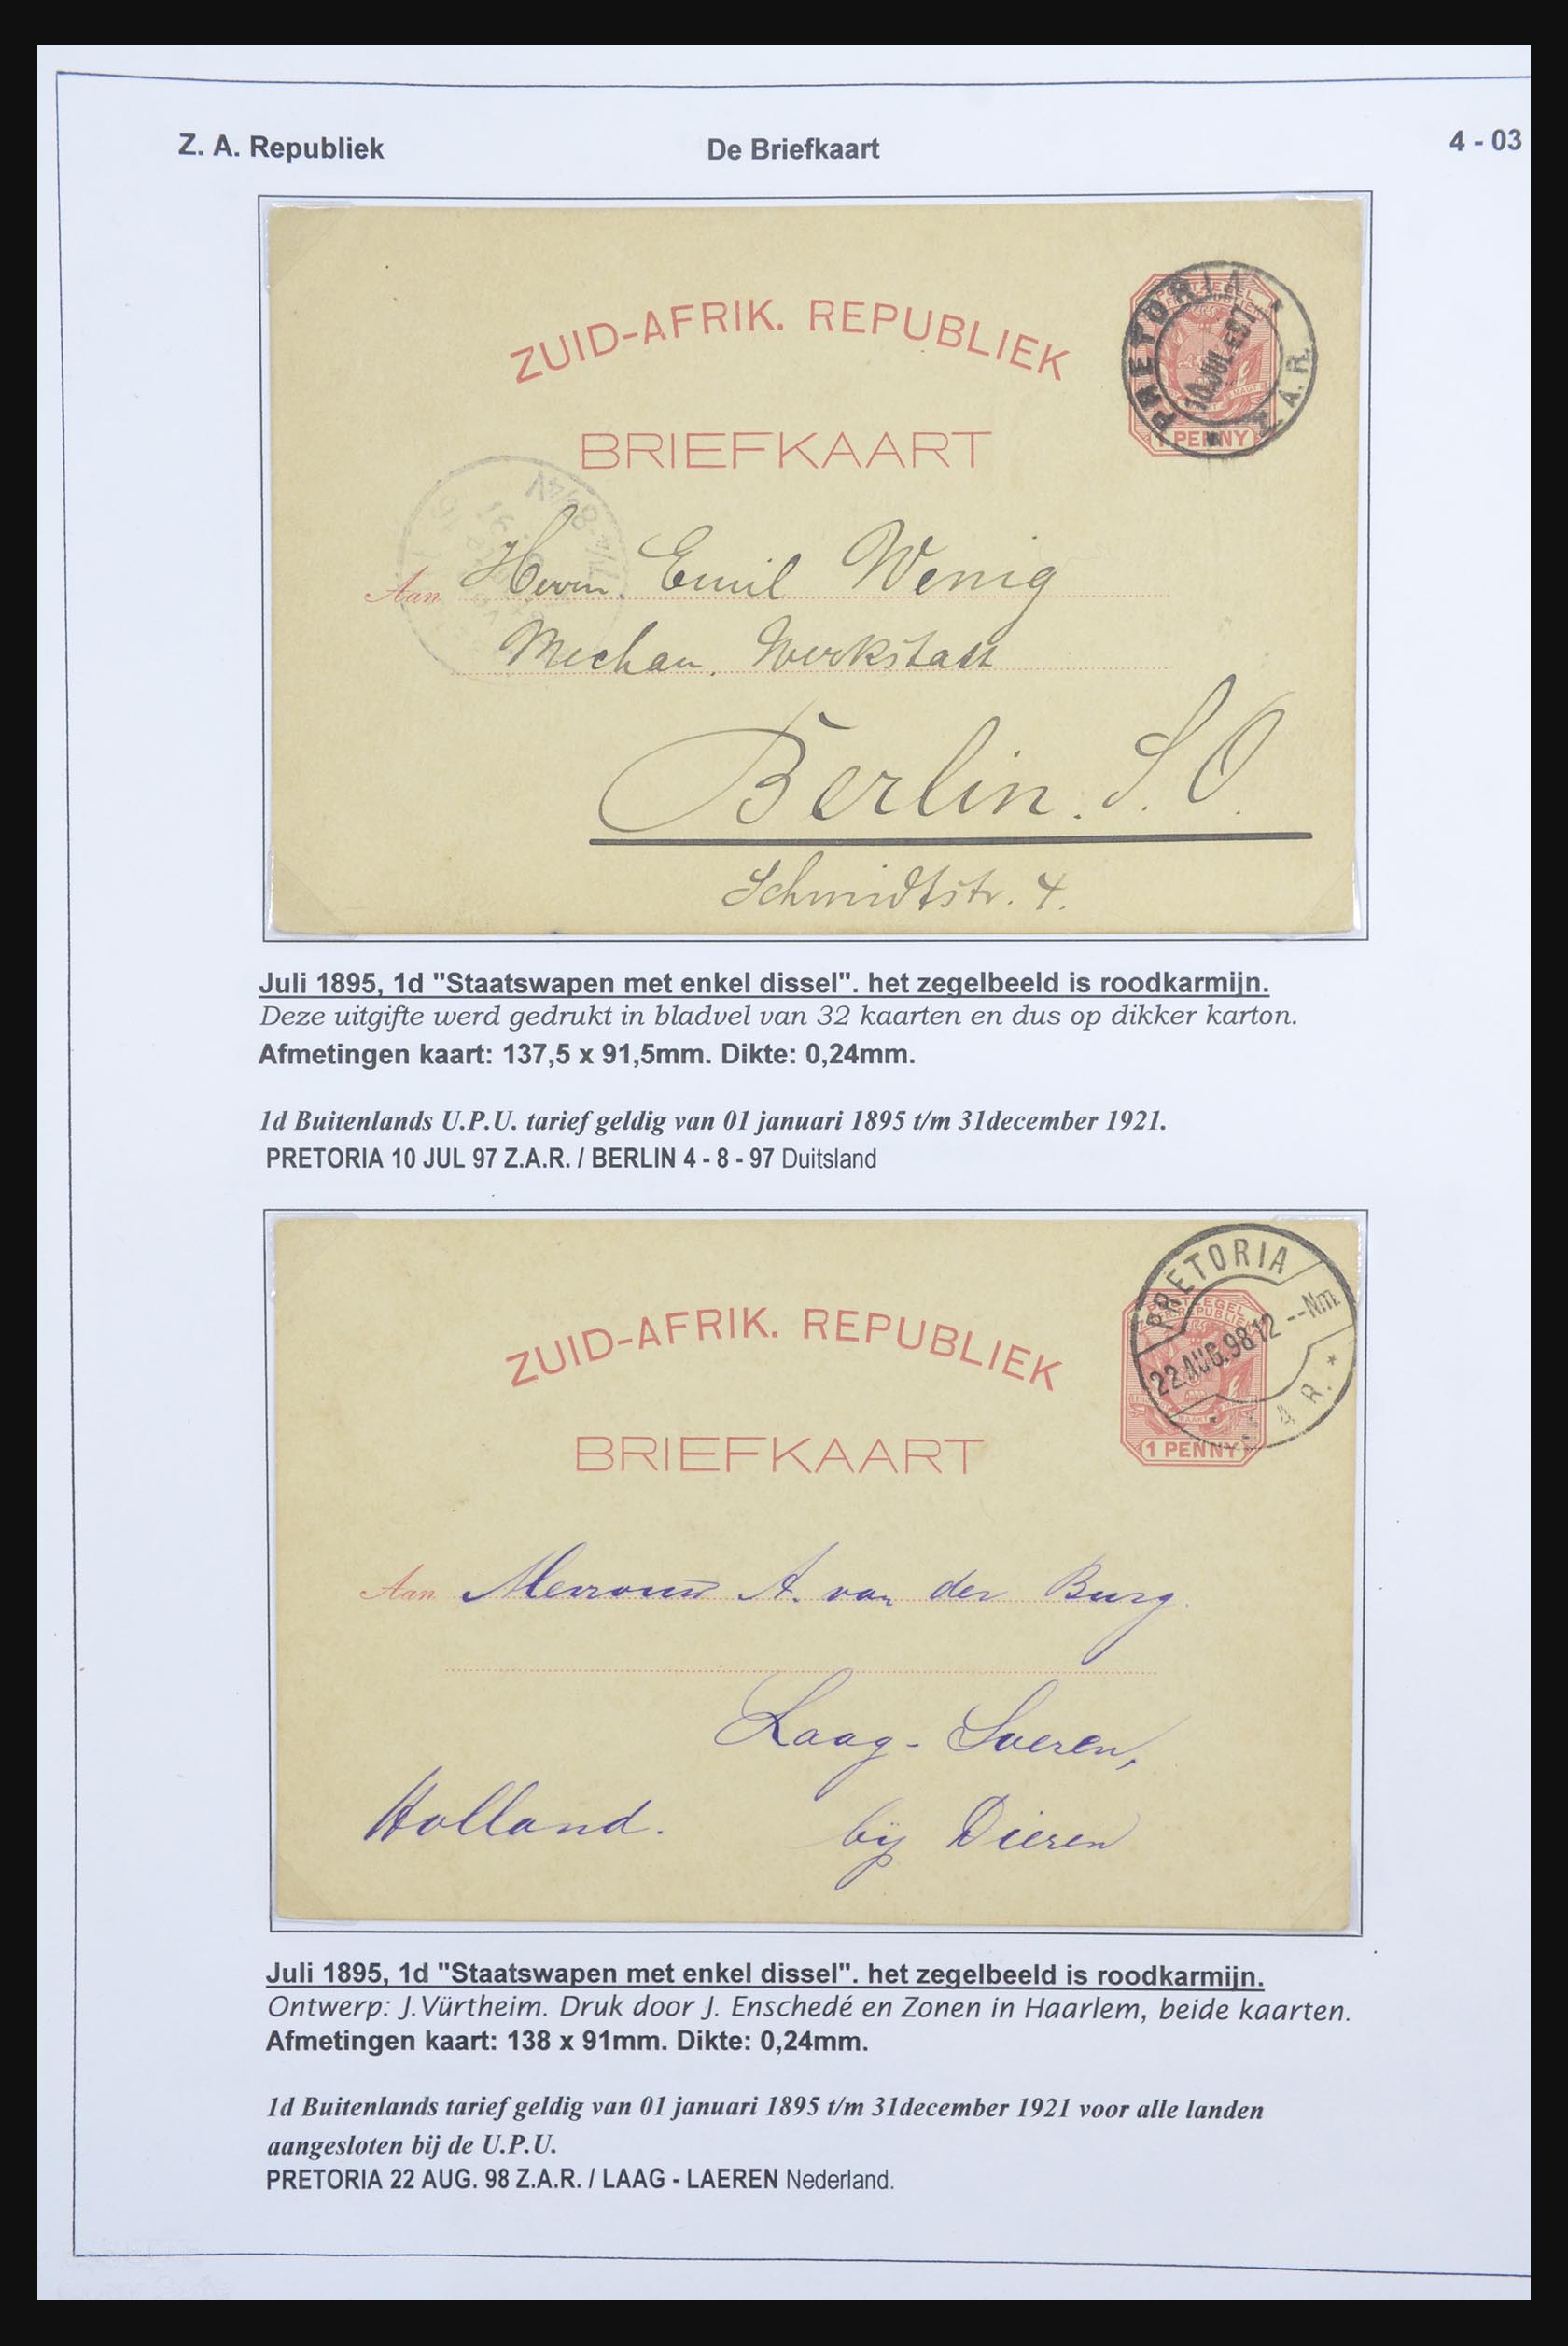 Z. A. Republiek
De Briefkaart
4 - 03
ZUID-AFRIK. REPUBLIEK
BRIEFKAART
PRETORIA
10 JUL 97
Z.A.R.
1 PENNY
Aan Herrn Emil Wenig
Mechan. Werkstatt
Berlin. S.O.
Schmidtstr. 4.
Juli 1895, 1d "Staatswapen met enkel dissel". het zegelbeeld is roodkarmijn.
Deze uitgifte werd gedrukt in bladvel van 32 kaarten en dus op dikker karton.
Afmetingen kaart: 137,5 x 91,5mm. Dikte: 0,24mm.
1d Buitenlands U.P.U. tarief geldig van 01 januari 1895 t/m 31december 1921.
PRETORIA 10 JUL 97 Z.A.R. / BERLIN 4 - 8 - 97 Duitsland
ZUID-AFRIK. REPUBLIEK
BRIEFKAART
PRETORIA
22.AUG.98 12 --Nm.
Z.A.R.
1 PENNY
Aan Mevrouw A. van der Burg.
Laag-Soeren,
Holland. bij Dieren
Juli 1895, 1d "Staatswapen met enkel dissel". het zegelbeeld is roodkarmijn.
Ontwerp: J.Vürtheim. Druk door J. Enschedé en Zonen in Haarlem, beide kaarten.
Afmetingen kaart: 138 x 91mm. Dikte: 0,24mm.
1d Buitenlands tarief geldig van 01 januari 1895 t/m 31december 1921 voor alle landen
aangesloten bij de U.P.U.
PRETORIA 22 AUG. 98 Z.A.R. / LAAG - LAEREN Nederland.